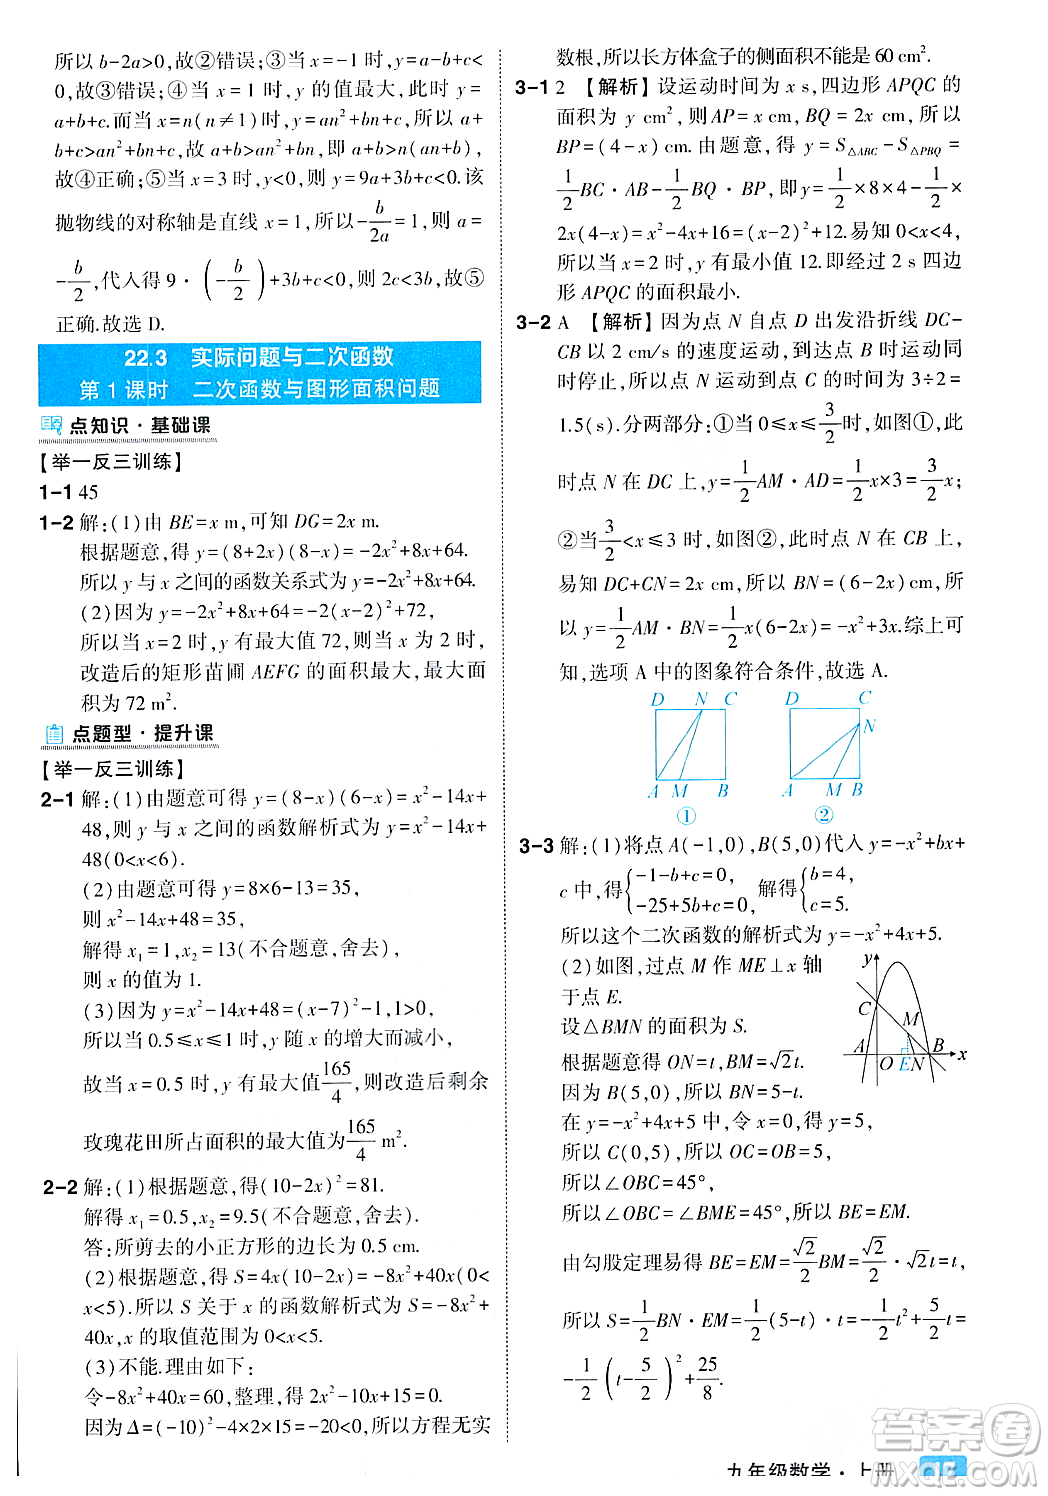 所以 b-2a>0,故②错误;③当 x=-1 时,y<
0,故③错误;④当 x=1 时,y 的值最大,此时 y=
a+b+c.而当 x=n(n≠1)时,y=an²+bn+c,所以 a+
b+c>an²+bn+c,故 a+b>an²+bn,即 a+b>n(an+b),
故④正确;⑤当 x=3 时,y<0,则 y=9a+3b+c<0.该
抛物线的对称轴是直线 x=1,所以-b/2a=1,所以 a=
-b/2,代入得 9·(-b/2)+3b+c<0,则 2c<3b,故⑤
正确.故选 D.
22.3 实际问题与二次函数
第 1 课时 二次函数与图形面积问题
点知识·基础课
【举一反三训练】
1-1 45
1-2 解:(1)由 BE=x m,可知 DG=2x m.
根据题意,得 y=(8+2x)(8-x)=-2x²+8x+64.
所以 y 与 x 之间的函数关系式为 y=-2x²+8x+64.
(2)因为 y=-2x²+8x+64=-2(x-2)²+72,
所以当 x=2 时,y 有最大值 72,则当 x 为 2 m 时,
改造后的矩形苗圃 AEFG 的面积最大,最大面
积为 72 m².
点题型·提升课
【举一反三训练】
2-1 解:(1)由题意可得 y=(8-x)(6-x)=x²-14x+
48,则 y 与 x 之间的函数解析式为 y=x²-14x+
48(0<x<6).
(2)由题意可得 y=8×6-13=35,
则 x²-14x+48=35,
解得 x₁=1,x₂=13(不合题意,舍去),
则 x 的值为 1.
(3)因为 y=x²-14x+48=(x-7)²-1,1>0,
所以当 0.5≤x≤1 时,y 随 x 的增大而减小,
故当 x=0.5 时,y 有最大值 165/4,则改造后剩余
玫瑰花田所占面积的最大值为 165/4 m².
2-2 解:(1)根据题意,得(10-2x)²=81.
解得 x₁=0.5,x₂=9.5(不合题意,舍去).
答:所剪去的小正方形的边长为 0.5 cm.
(2)根据题意,得 S=4x(10-2x)=-8x²+40x(0<
x<5).所以 S 关于 x 的函数解析式为 S=-8x²+
40x,x 的取值范围为 0<x<5.
(3)不能.理由如下:
令-8x²+40x=60,整理,得 2x²-10x+15=0.
因为 Δ=(-10)²-4×2×15=-20<0,所以方程无实
数根,所以长方体盒子的侧面积不能是 60 cm².
3-1 2 【解析】设运动时间为 x s,四边形 APQC 的
面积为 y cm²,则 AP=x cm,BQ=2x cm,所以
BP=(4-x)cm.由题意,得 y=S△ABC-S△PBQ=
1/2 BC·AB-1/2 BQ·BP,即 y=1/2×8×4-1/2×
2x(4-x)=x²-4x+16=(x-2)²+12.易知 0<x<4,
所以当 x=2 时,y 有最小值 12.即经过 2 s 四边
形 APQC 的面积最小.
3-2 A 【解析】因为点 N 自点 D 出发沿折线 DC-
CB 以 2 cm/s 的速度运动,到达点 B 时运动同
时停止,所以点 N 运动到点 C 的时间为 3÷2=
1.5(s).分两部分:①当 0≤x≤3/2 时,如图①,此
时点 N 在 DC 上,y=1/2 AM·AD=1/2 x×3=3/2 x;
②当 3/2<x≤3 时,如图②,此时点 N 在 CB 上,
易知 DC+CN=2x cm,所以 BN=(6-2x)cm,所
以 y=1/2 AM·BN=1/2 x(6-2x)=-x²+3x.综上可
知,选项 A 中的图象符合条件,故选 A.
D N C D C
N
A M B A M B
① ②
3-3 解:(1)将点 A(-1,0),B(5,0)代入 y=-x²+bx+
c 中,得{-1-b+c=0,-25+5b+c=0,解得{b=4,c=5.
所以这个二次函数的解析式为 y=-x²+4x+5.
(2)如图,过点 M 作 ME⊥x 轴
于点 E.
设△BMN 的面积为 S.
根据题意得 ON=t,BM=√2t.
因为 B(5,0),所以 BN=5-t.
y
C
M
A
B
O
E
N
x
在 y=-x²+4x+5 中,令 x=0,得 y=5,
所以 C(0,5),所以 OC=OB=5,
所以∠OBC=45°,
所以∠OBC=∠BME=45°,所以 BE=EM.
由勾股定理易得 BE=EM=√2/2 BM=√2/2·√2t=t,
所以 S=1/2 BN·EM=1/2(5-t)·t=-1/2t²+5/2t=
-1/2(t-5/2)²+25/8.
九年级数学·上册
答案圈
MXQE.COM